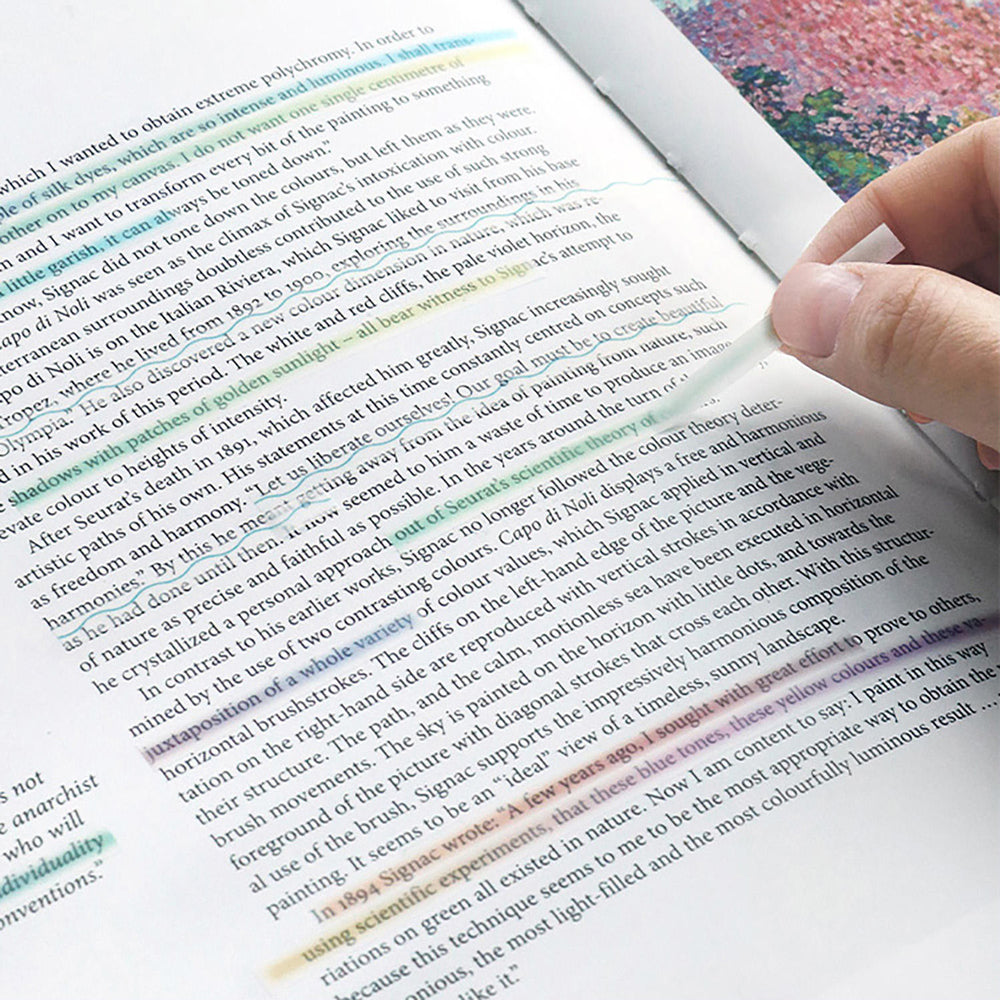 which I wanted to obtain extreme polychromy. In order to
of silk dyes, which are so intense and luminous. I shall trans-
other on to my canvas. I do not want one single centimetre of
and I want to transform every bit of the painting to something
little garish, it can always be toned down.”
know, Signac did not tone down the colours, but left them as they were.
di Noli was seen as the climax of Signac's intoxication with colour.
surroundings doubtless contributed to the use of such strong
di Noli is on the Italian Riviera, which Signac liked to visit from his base
where he lived from 1892 to 1900, exploring the surroundings in his
Olympia.” He also discovered a new colour dimension in nature, which was re-
in his work of this period. The white and red cliffs, the pale violet horizon, the
shadows with patches of golden sunlight – all bear witness to Signac's attempt to
evate colour to heights of intensity.
After Seurat's death in 1891, which affected him greatly, Signac increasingly sought
artistic paths of his own. His statements at this time constantly centred on concepts such
as freedom and harmony. “Let us liberate ourselves! Our goal must be to create beautiful
harmonies.” By this he meant getting away from the idea of painting from nature, such
as he had done until then. It now seemed to him a waste of time to produce an image
of nature as precise and faithful as possible. In the years around the turn of
he crystallized a personal approach out of Seurat's scientific theory of
In contrast to his earlier works, Signac no longer followed the colour theory deter-
mined by the use of two contrasting colours. Capo di Noli displays a free and harmonious
juxtaposition of a whole variety of colour values, which Signac applied in vertical and
horizontal brushstrokes. The cliffs on the left-hand edge of the picture and the vege-
tation on the right-hand side are reproduced with vertical strokes in accordance with
their structure. The path, and the calm, motionless sea have been executed in horizontal
brush movements. The sky is painted on the horizon with little dots, and towards the
foreground of the picture with diagonal strokes that cross each other. With this structur-
al use of the brush, Signac supports the impressively harmonious composition of the
painting. It seems to be an “ideal” view of a timeless, sunny landscape.
In 1894 Signac wrote: “A few years ago, I sought with great effort to prove to others,
using scientific experiments, that these blue tones, these yellow colours and these va-
riations on green all existed in nature. Now I am content to say: I paint in this way
because this technique seems to me to be the most appropriate way to obtain the
onious, the most light-filled and the most colourfully luminous result ...
like it.”
not
anarchist
who will
dividuality
onventions.”